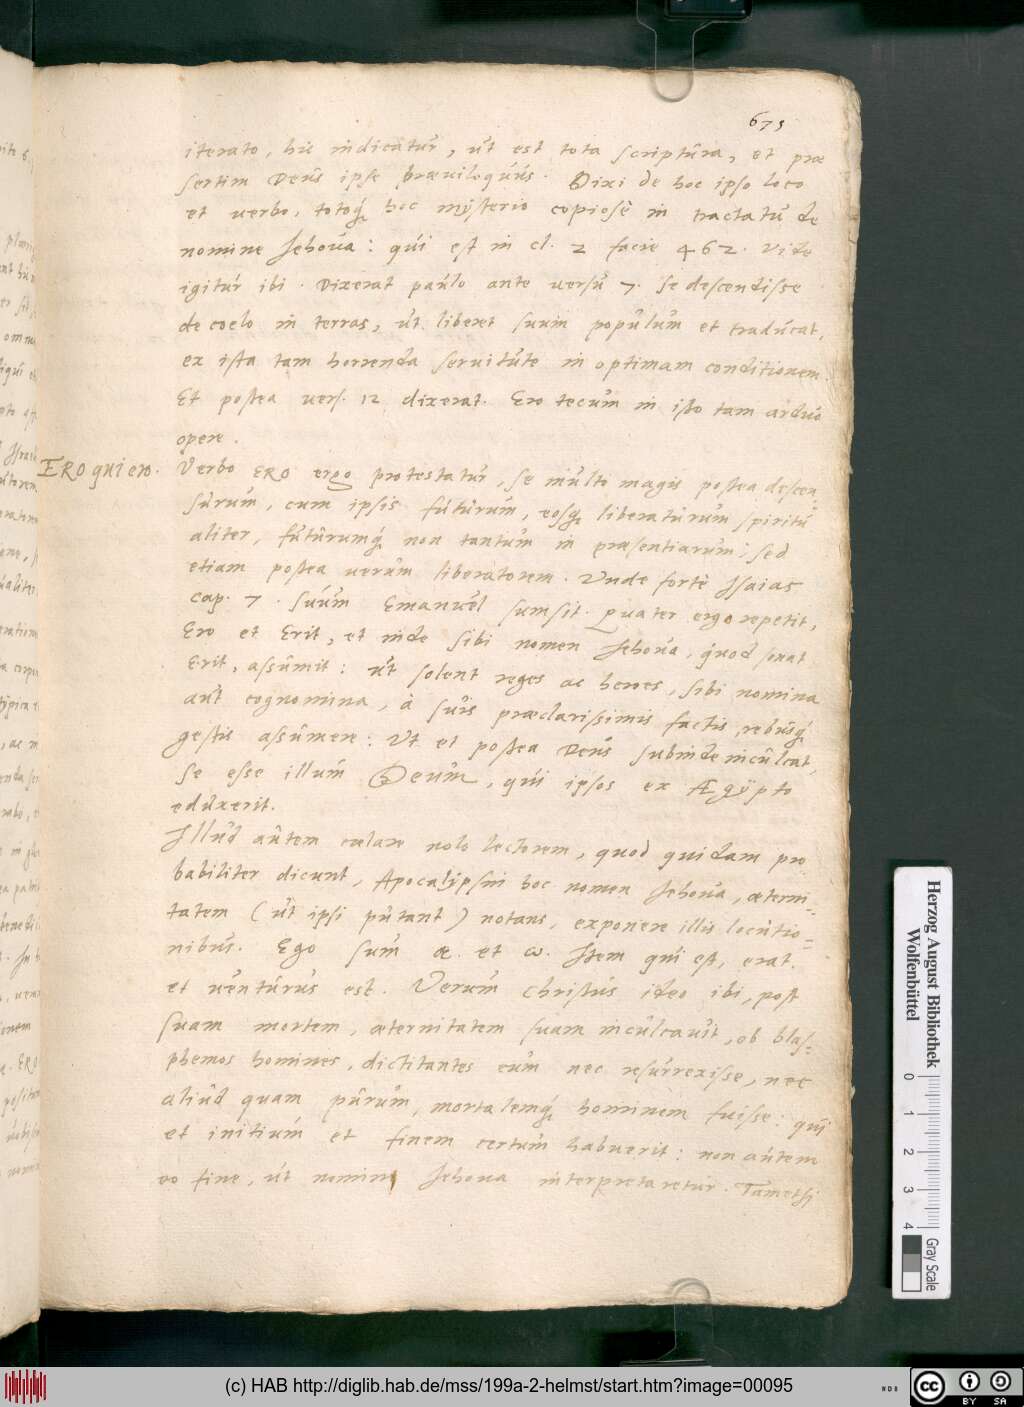 675
iterato, hic indicatur, ut est tota scriptura, et præ
sertim Deus ipse præviloquus. Dixi de hoc ipso loco
et verbo, totoq́ hoc mysterio copiosè in tractatu de
nomine Jehova: qui est in cl. 2 facie 462. Vide
igitur ibi. Dixerat paulo ante versu 7. se descendisse
de coelo in terras, ut liberet suum populum et traducat,
ex ista tam horrenda servitute in optimam conditionem.
Et postea vers. 12 dixerat. Ero tecum in isto tam arduo
opere.
ERO qui ero.
Verbo ERO ergo protestatur, se multo magis postea descen
surum, cum ipsis futurum, eosq́ liberaturum spiritu
aliter, futurumq́ non tantum in præsentiarum; sed
etiam postea verum liberatorem. Unde fortè Isaias
cap. 7. suum Emanuel sumsit. Quater ergo repetit,
Ero et Erit, et inde sibi nomen Jehova, quod sonat
Erit, assumit: ut solent reges ac heroes, sibi nomina
aut cognomina, à suis præclarissimis factis, rebusq́
gestis assumere: Ut et postea Deus subinde inculcat,
se esse illum Deum, qui ipsos ex Ægypto
eduxerit.
Illud autem celare nolo lectorem, quod quidam pro
babiliter dicunt, Apocalipsin hoc nomen Jehova, æterni-
tatem (ut ipsi putant) notans, exponere illis locutio-
nibus. Ego sum α. et ω. Item qui est, erat.
et venturus est. Verum Christus ideo ibi, post
suam mortem, æternitatem suam inculcavit, ob blas-
phemos homines, dictitantes eum nec resurrexisse, nec
aliud quam purum, mortalemq́ hominem fuisse: qui
et initium et finem certum habuerit: non autem
eo fine, ut nomen Jehova interpretaretur. Tametsi
Herzog August Bibliothek
Wolfenbüttel
0 1 2 3 4
Gray Scale
(c) HAB http://diglib.hab.de/mss/199a-2-helmst/start.htm?image=00095
cc
BY SA